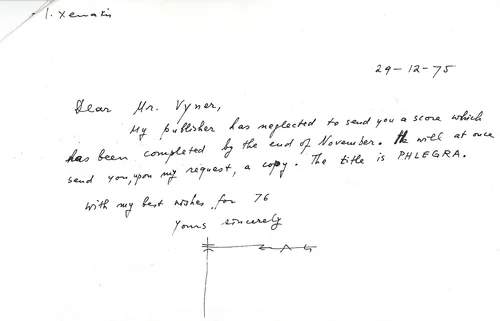 I. Xenakis
29-12-75
Dear Mr. Vyner,
My publisher has neglected to send you a score which
has been completed by the end of November. He will at once
send you, upon my request, a copy. The title is PHLEGRA.
With my best wishes for 76
Yours sincerely